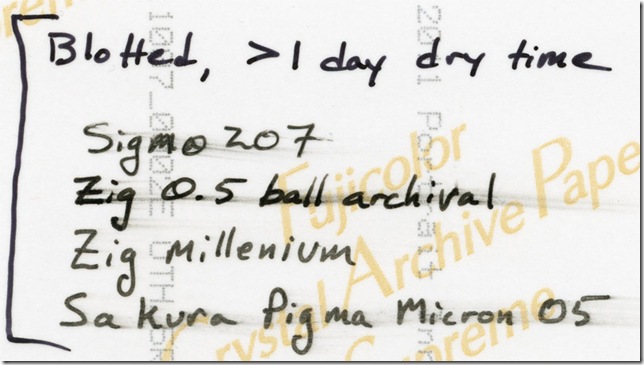 Blotted, >1 day dry time
Sigmo 207
Zig 0.5 ball archival
Zig Millenium
Sakura Pigma Micron 05
Fujicolor
Crystal Archive Paper
Supreme